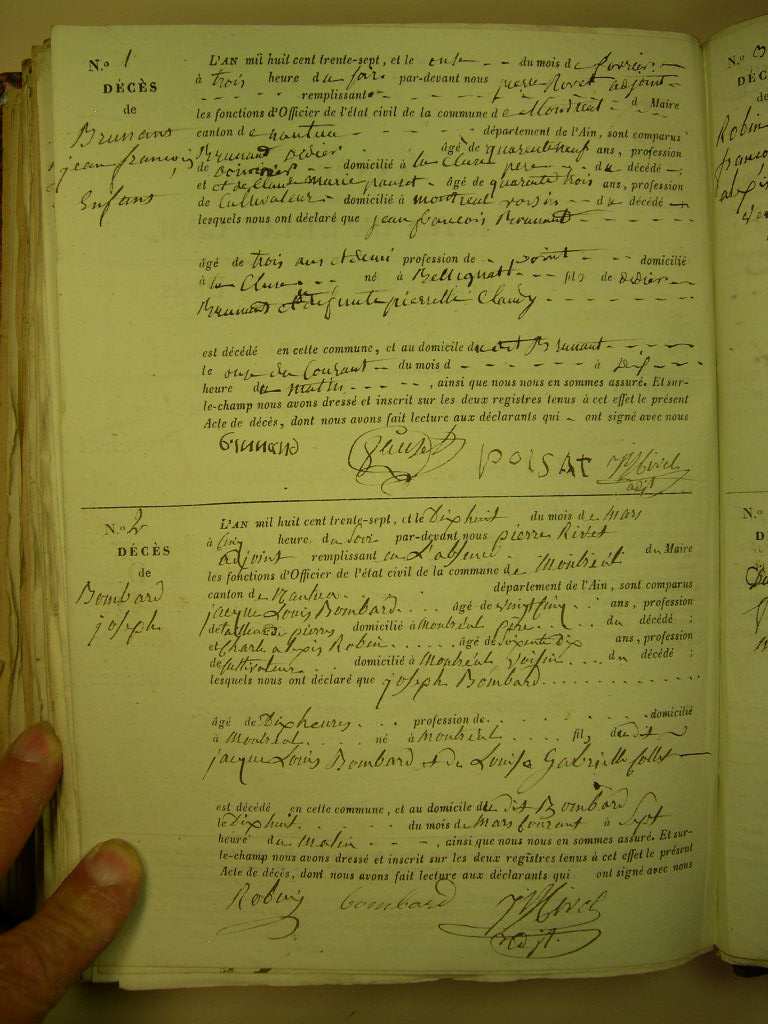 N.o 1
DÉCÈS
de
Brunans
jean françois
Enfans
L'AN mil huit cent trente-sept, et le onze du mois de fevrier
à trois heure du soir par-devant nous pierre Rivet adjoint
remplissant
les fonctions d'Officier de l'état civil de la commune de Montreal d Maire
canton de nantua département de l'Ain, sont comparus
Brunand Didier âgé de quarante neuf ans, profession
de domicilié à la Cluse pere du décédé ;
et et de Claude marie âgé de quarante trois ans, profession
de Cultivateur domicilié à montreal voisin du décédé
lesquels nous ont déclaré que jean francois Brunand
âgé de trois ans et demi profession de point domicilié
à la Cluse né à Bellignat fils de didier
Brunand et de defunte pierrette Claudy
est décédé en cette commune, et au domicile du dit Brunant
le onze du Courant du mois d à dix
heure du matin , ainsi que nous nous en sommes assuré. Et sur-
le-champ nous avons dressé et inscrit sur les deux registres tenus à cet effet le présent
Acte de décès, dont nous avons fait lecture aux déclarants qui ont signé avec nous
POISAT
adjt
N.o 2
DÉCÈS
de
Bombard
joseph
L'AN mil huit cent trente-sept, et le Dix huit du mois de Mars
à Cinq heure du Soir par-devant nous pierre Rivet
adjoint remplissant en L'absence du Maire
les fonctions d'Officier de l'état civil de la commune de Montréal
canton de Nantua département de l'Ain, sont comparus
jacque Louis Bombard âgé de vingt cinq ans, profession
de tailleur de pierres domicilié à Montréal Père du décédé ;
et Charle alexis Robin âgé de Soixente Dix ans, profession
de Cultivateur domicilié à Montréal Voisin du décédé ;
lesquels nous ont déclaré que joseph Bombard
âgé de Dix heures profession de domicilié
à Montréal né à Montréal fils du dit
jacque Louis Bombard et de Louise Gabrielle Collet
est décédé en cette commune, et au domicile du dit Bombard
le Dix huit du mois de Mars Courant à Sept
heure du Matin , ainsi que nous nous en sommes assuré. Et sur-
le-champ nous avons dressé et inscrit sur les deux registres tenus à cet effet le présent
Acte de décès, dont nous avons fait lecture aux déclarants qui ont signé avec nous
Robin bombard
adjt.
N.o
DÉC
de
Robin
N.o
D